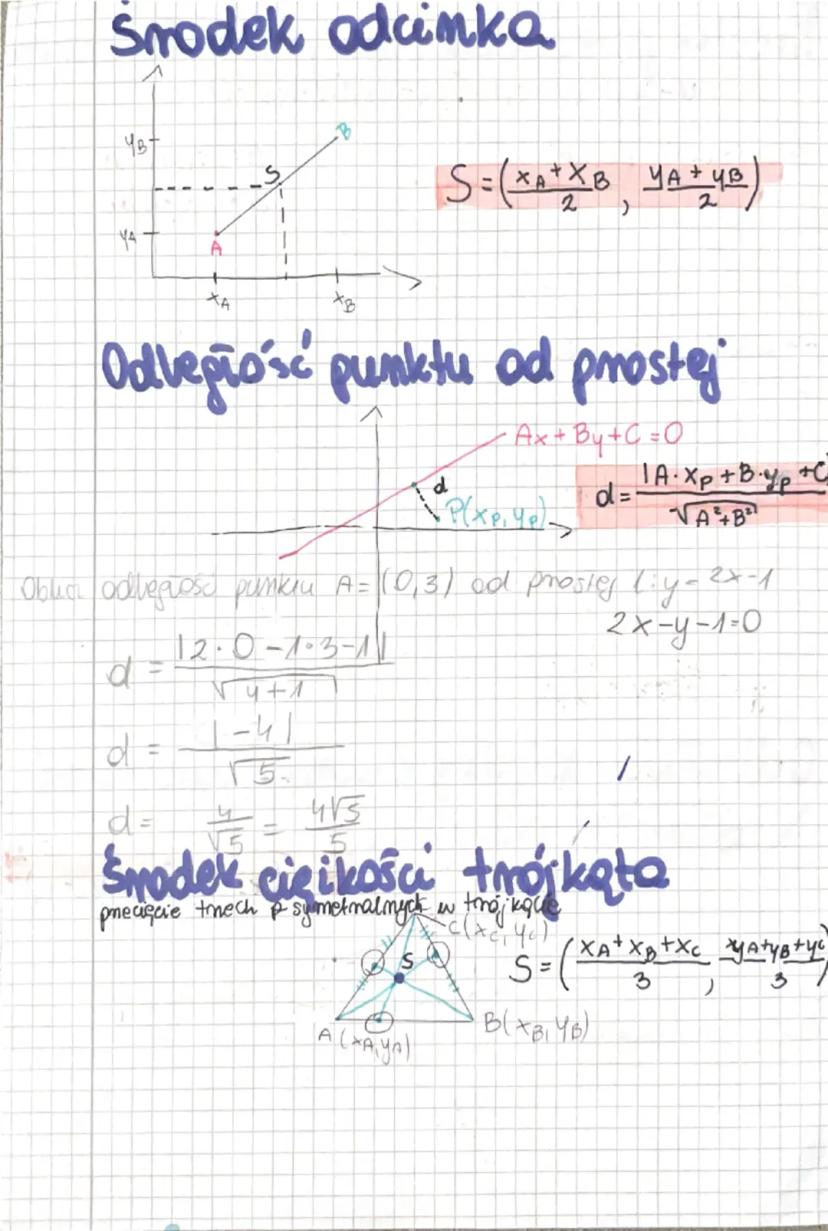 Środek odcinka
yB
B
S
S = (xA + xB / 2, yA + yB / 2)
yA
A
xA
xB
Odległość punktu od prostej
Ax + By + C = 0
d
P(xP, yP)
d = |A · xP + B · yP + C / √A² + B²
Oblicz odległość punktu A = (0,3) od prostej l: y = 2x - 1
2x - y - 1 = 0
d = |2 · 0 - 1 · 3 - 1| / √4 + 1
d = |-4| / √5
d = 4 / √5 = 4√5 / 5
Środek ciężkości trójkąta
przecięcie trzech symetralnych w trójkącie
C(xC, yC)
S
S = (xA + xB + xC / 3, yA + yB + yC / 3)
A(xA, yA)
B(xB, yB)